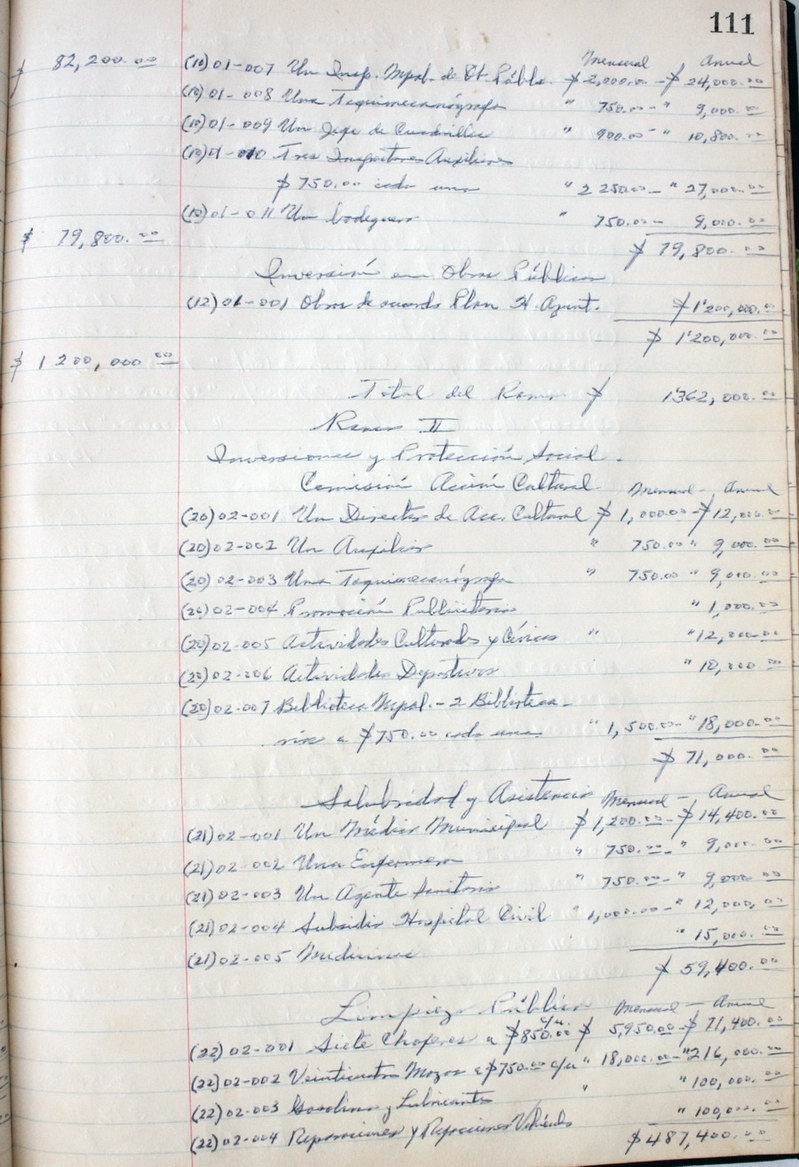 111
Mensual Anual
$ 82,200.00 (10) 01-007 Un Insp. Mpal. de Ob. Públic. $ 2,000.00 - $ 24,000.00
(10) 01-008 Una Taquimecanógrafa " 750.00 - " 9,000.00
(10) 01-009 Un Jefe de Cuadrillas " 900.00 - " 10,800.00
(10) 01-010 Tres Inspectores Auxiliares
$ 750.00 cada uno " 2 250.00 - " 27,000.00
(10) 01-011 Un bodeguero " 750.00 - 9,000.00
$ 79,800.00 $ 79,800.00
Inversión en Obras Públicas
(12) 01-001 Obras de acuerdo Plan H. Ayunt. $ 1'200,000.00
$ 1'200,000.00
$ 1 200,000 00
Total del Ramo $ 1362,000.00
Ramo II
Inversiones y Protección Social.
Comisión Acción Cultural Mensual - Anual
(20) 02-001 Un Director de Acc. Cultural $ 1,000.00 - $ 12,000.00
(20) 02-002 Un Auxiliar " 750.00 " 9,000.00
(20) 02-003 Una Taquimecanógrafa " 750.00 " 9,000.00
(20) 02-004 Promoción Publicitaria " 1,000.00
(20) 02-005 Actividades Culturales y Cívicas " " 12,000.00
(20) 02-006 Actividades Deportivas " 10,000.00
(20) 02-007 Biblioteca Mpal. - 2 Biblioteca-
rias a $ 750.00 cada una " 1,500.00 - " 18,000.00
$ 71,000.00
Salubridad y Asistencia Mensual - Anual
(21) 02-001 Un Médico Municipal $ 1,200.00 - $ 14,400.00
(21) 02-002 Una Enfermera " 750.00 - " 9,000.00
(21) 02-003 Un Agente Sanitario " 750.00 - " 9,000.00
(21) 02-004 Subsidio Hospital Civil " 1,000.00 - " 12,000.00
(21) 02-005 Medicinas " 15,000.00
$ 59,400.00
Limpieza Pública Mensual - Anual
(22) 02-001 Siete Choferes a $ 850.00 c/u. $ 5,950.00 - $ 71,400.00
(22) 02-002 Veinticuatro Mozos a $ 750.00 c/u " 18,000.00 - " 216,000.00
(22) 02-003 Gasolina y Lubricantes " " 100,000.00
(22) 02-004 Reparaciones y Refacciones Vehículo " 100,000.00
$ 487,400.00